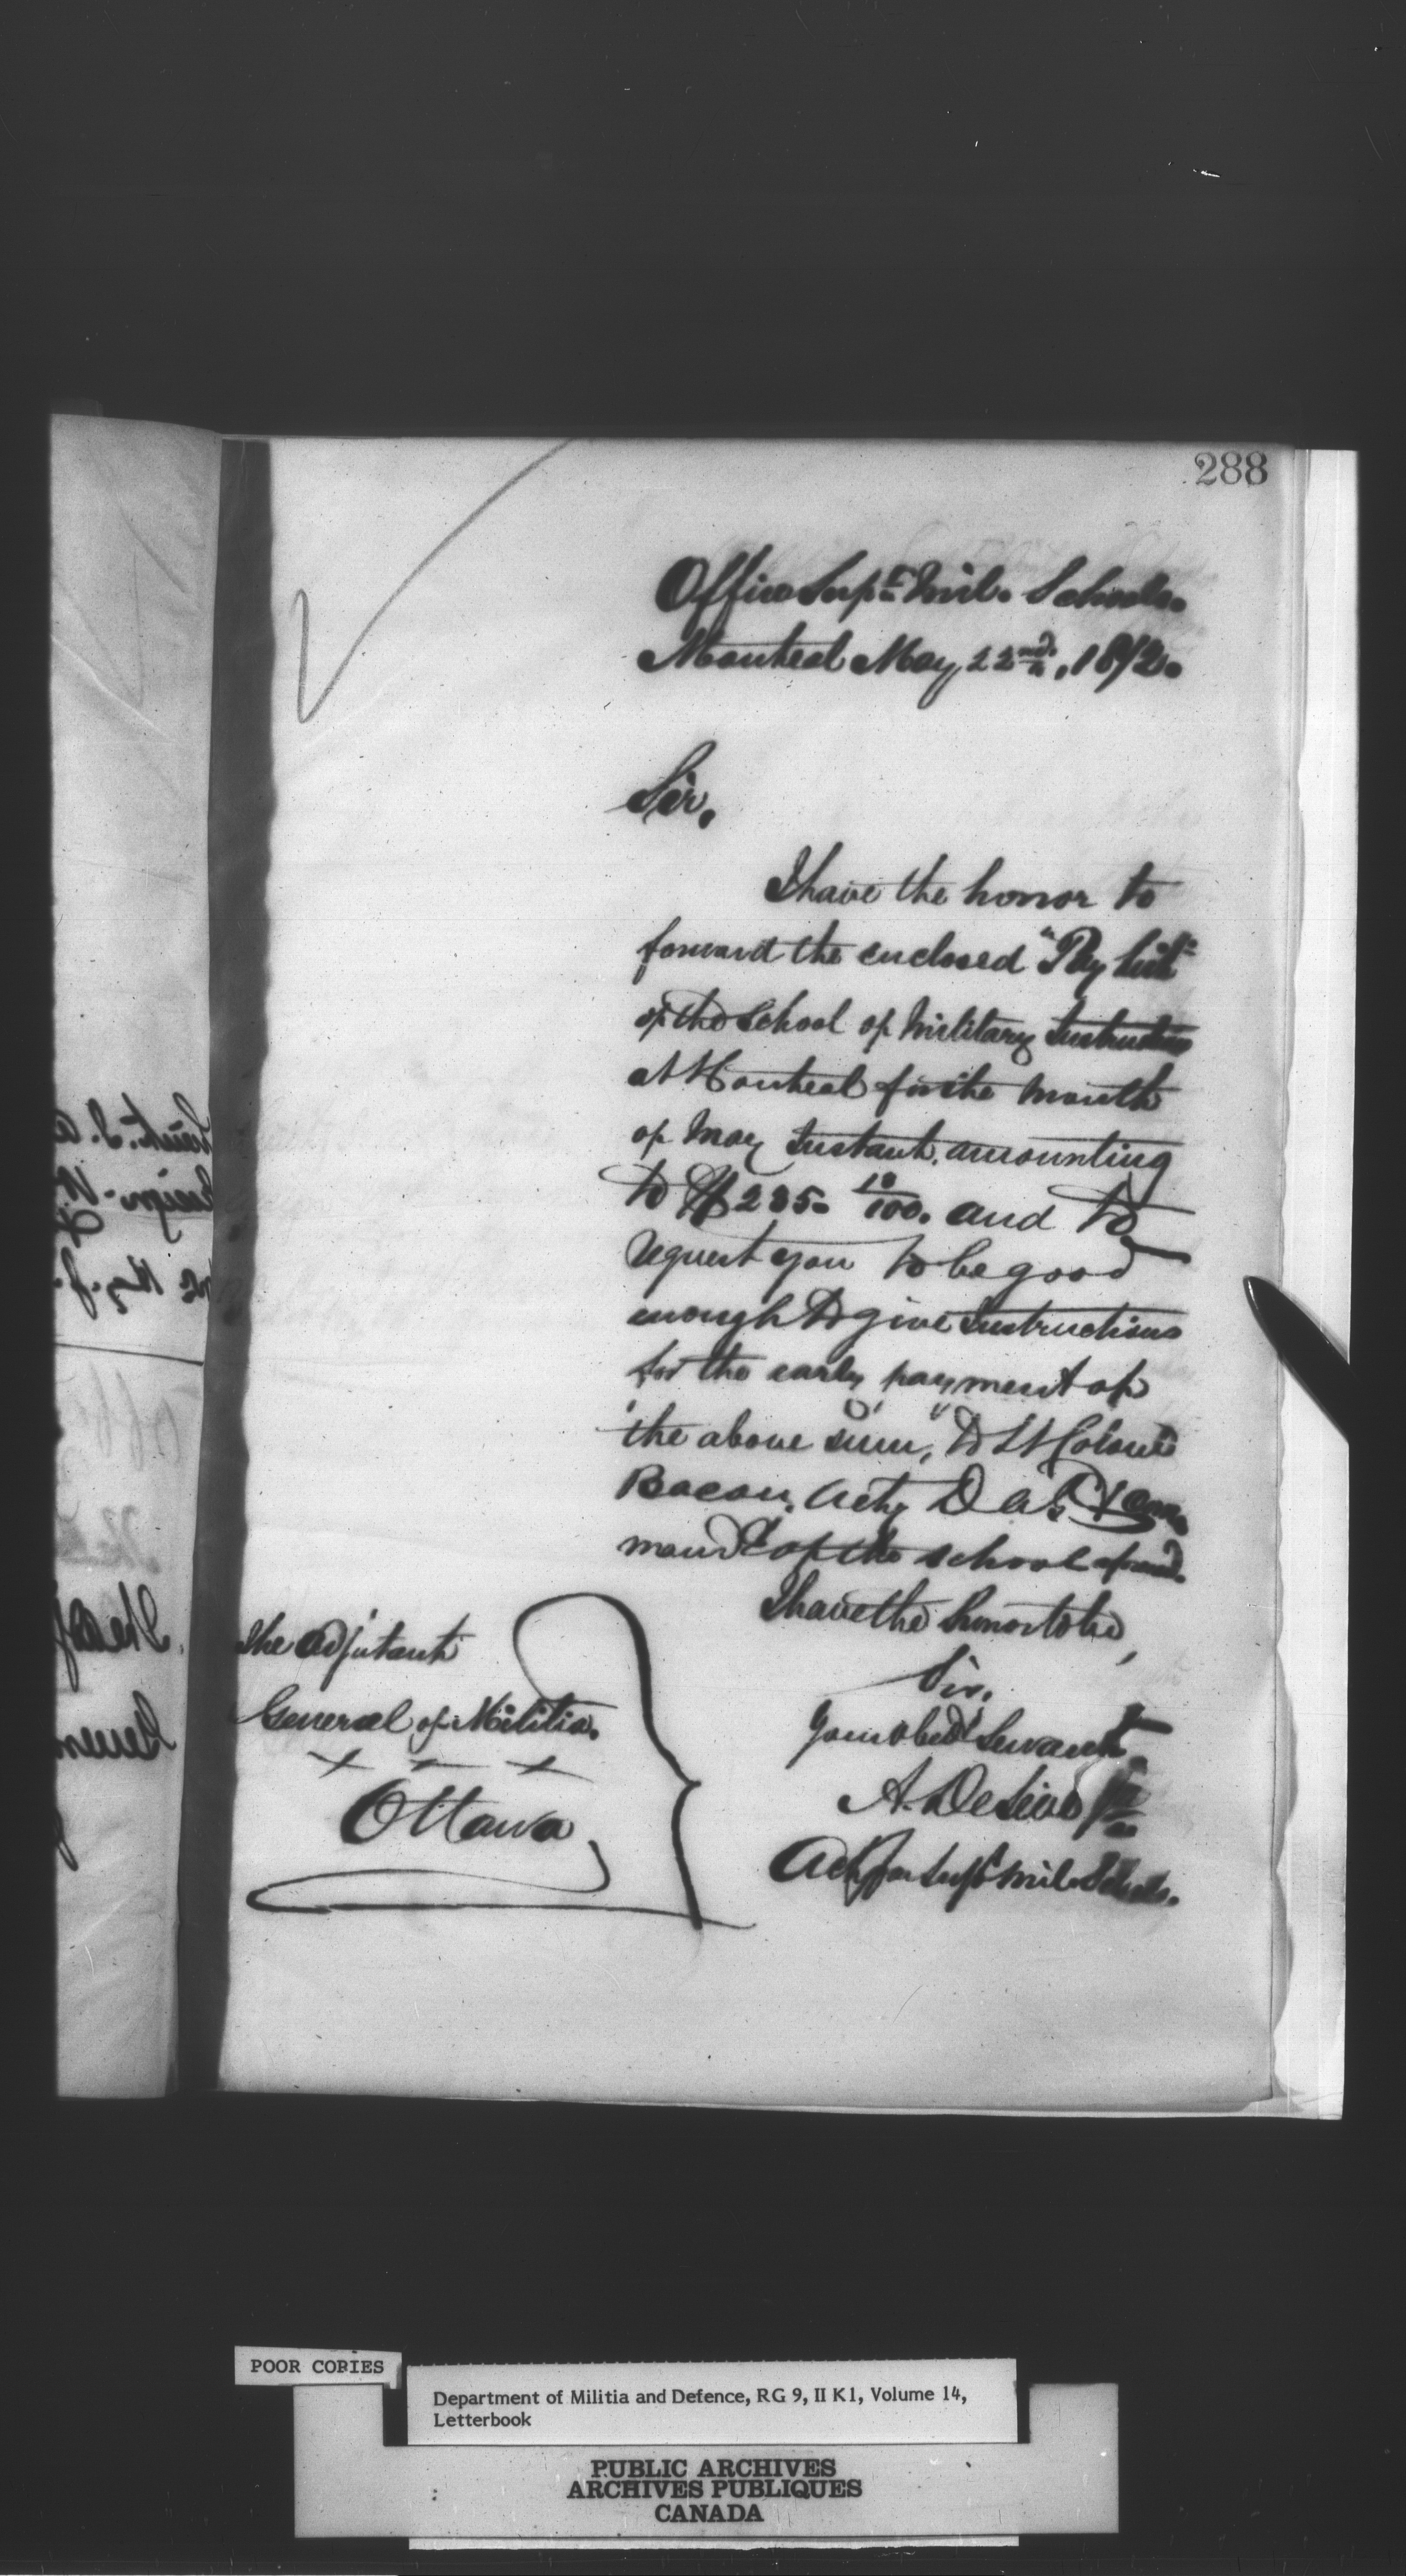 288
Office Supt. Mil. Schools.
Montreal May 22nd, 1872.
Sir,
I have the honor to
forward the enclosed "Pay list"
of the School of Military Instruction
at Montreal for the month
of May Instant, amounting
to $235. 10/100. and to
request you to be good
enough to give Instructions
for the early payment of
the above sum, to Lt Colonel
Bacon, Actg D A G & Com-
mandt of the school
I have the honor to be,
Sir,
Your obedt Servant
A. De
Actg for Supt Mil Schools.
The Adjutant
General of Militia.
Ottawa
POOR COPIES
Department of Militia and Defence, RG 9, II K1, Volume 14,
Letterbook
PUBLIC ARCHIVES
ARCHIVES PUBLIQUES
CANADA